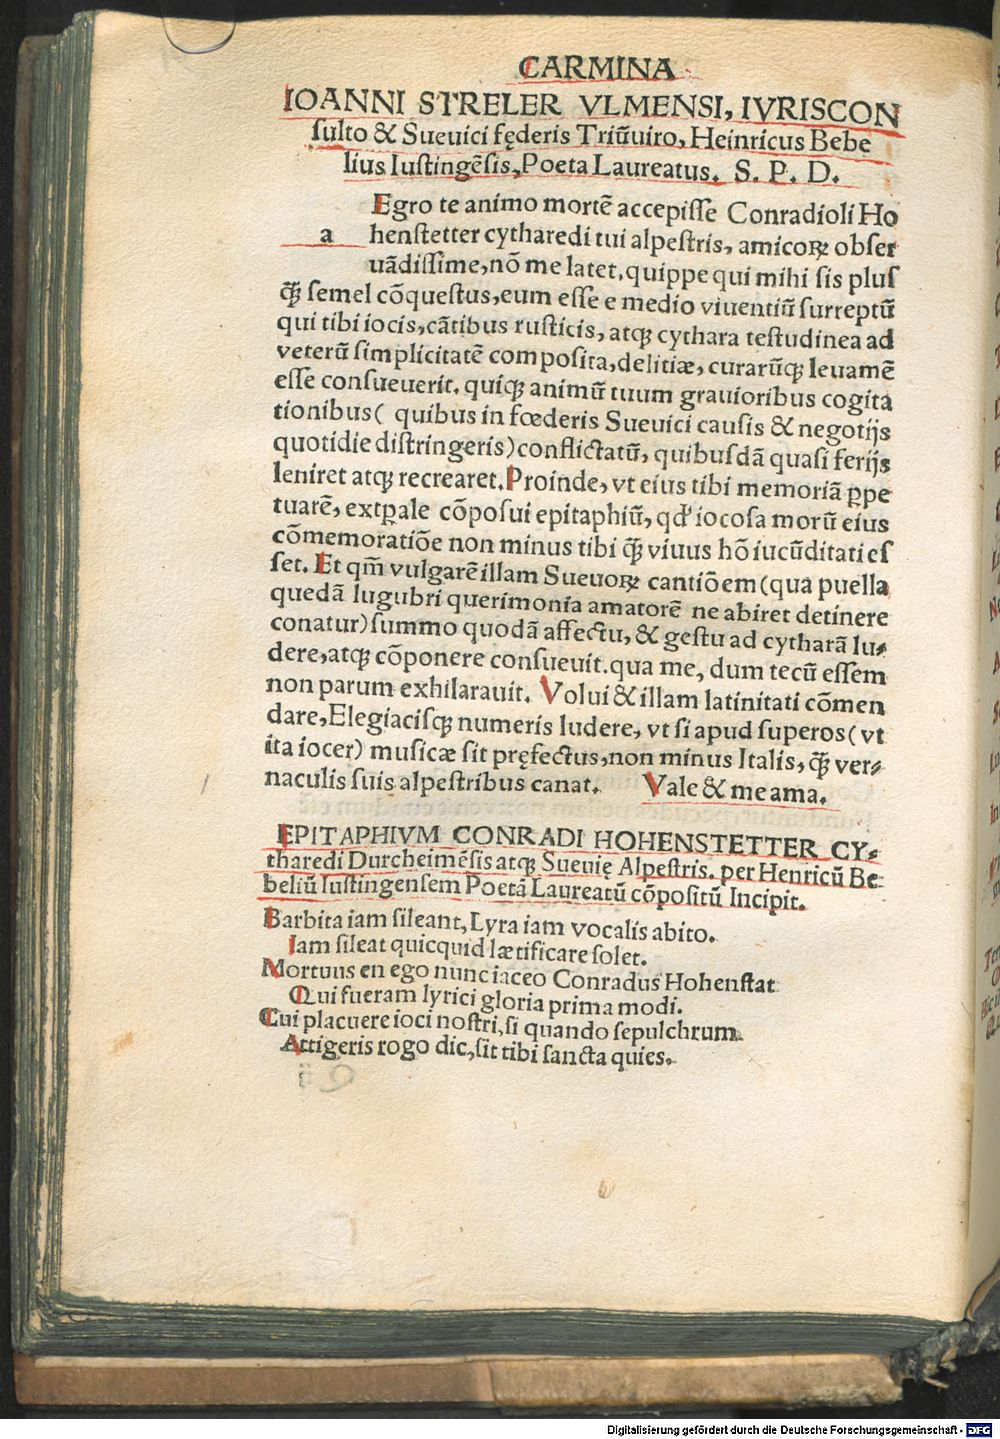 CARMINA
IOANNI STRELER VLMENSI, IVRISCON
ſulto & Sueuici fęderis Triũuiro, Heinricus Bebe
lius Iuſtingẽſis, Poeta Laureatus. S. P. D.
Egro te animo mortẽ accepiſſe Conradioli Ho
a henſtetter cytharedi tui alpeſtris, amicoꝝ obſer
uãdiſſime, nõ me latet. quippe qui mihi ſis pluſ
q̃ꝫ ſemel cõqueſtus, eum eſſe e medio viuentiũ ſurreptũ
qui tibi iocis, cãtibus ruſticis, atqꝫ cythara teſtudinea ad
veterũ ſimplicitatẽ compoſita, delitiæ, curarũqꝫ leuamẽ
eſſe conſueuerit. quiqꝫ animũ tuum grauioribus cogita
tionibus( quibus in fœderis Sueuici cauſis & negotijs
quotidie diſtringeris) conflictatũ, quibuſdã quaſi ferijs
leniret atqꝫ recrearet. Proinde, vt eius tibi memoriã ꝑpe
tuarẽ, extꝑale cõpoſui epitaphiũ, qđ iocoſa morũ eius
cõmemoratiõe non minus tibi q̃ꝫ viuus hõ iucũditati eſ
ſet. Et qm̃ vulgarẽ illam Sueuoꝝ cantiõem (qua puella
quedã lugubri querimonia amatorẽ ne abiret detinere
conatur) ſummo quodã affectu, & geſtu ad cytharã lu⸗
dere, atqꝫ cõponere conſueuit. qua me, dum tecũ eſſem
non parum exhilarauit. Volui & illam latinitati cõmen
dare, Elegiaciſqꝫ numeris ludere, vt ſi apud ſuperos ( vt
ita iocer) muſicæ ſit pręfectus, non minus Italis, q̃ꝫ ver⸗
naculis ſuis alpeſtribus canat. Vale & me ama.
EPITAPHIVM CONRADI HOHENSTETTER CY⸗
tharedi Durcheimẽſis atqꝫ Sueuię Alpeſtris. per Henricũ Be⸗
beliũ Iuſtingenſem Poetã Laureatũ cõpoſitũ Incipit.
Barbita iam ſileant, Lyra iam vocalis abito.
Iam ſileat quicquid lætificare ſolet.
Mortuus en ego nunc iaceo Conradus Hohenſtat
Qui fueram lyrici gloria prima modi.
Cui placuere ioci noſtri, ſi quando ſepulchrum
Attigeris rogo dic, ſit tibi ſancta quies.
Digitalisierung gefördert durch die Deutsche Forschungsgemeinschaft - DFG